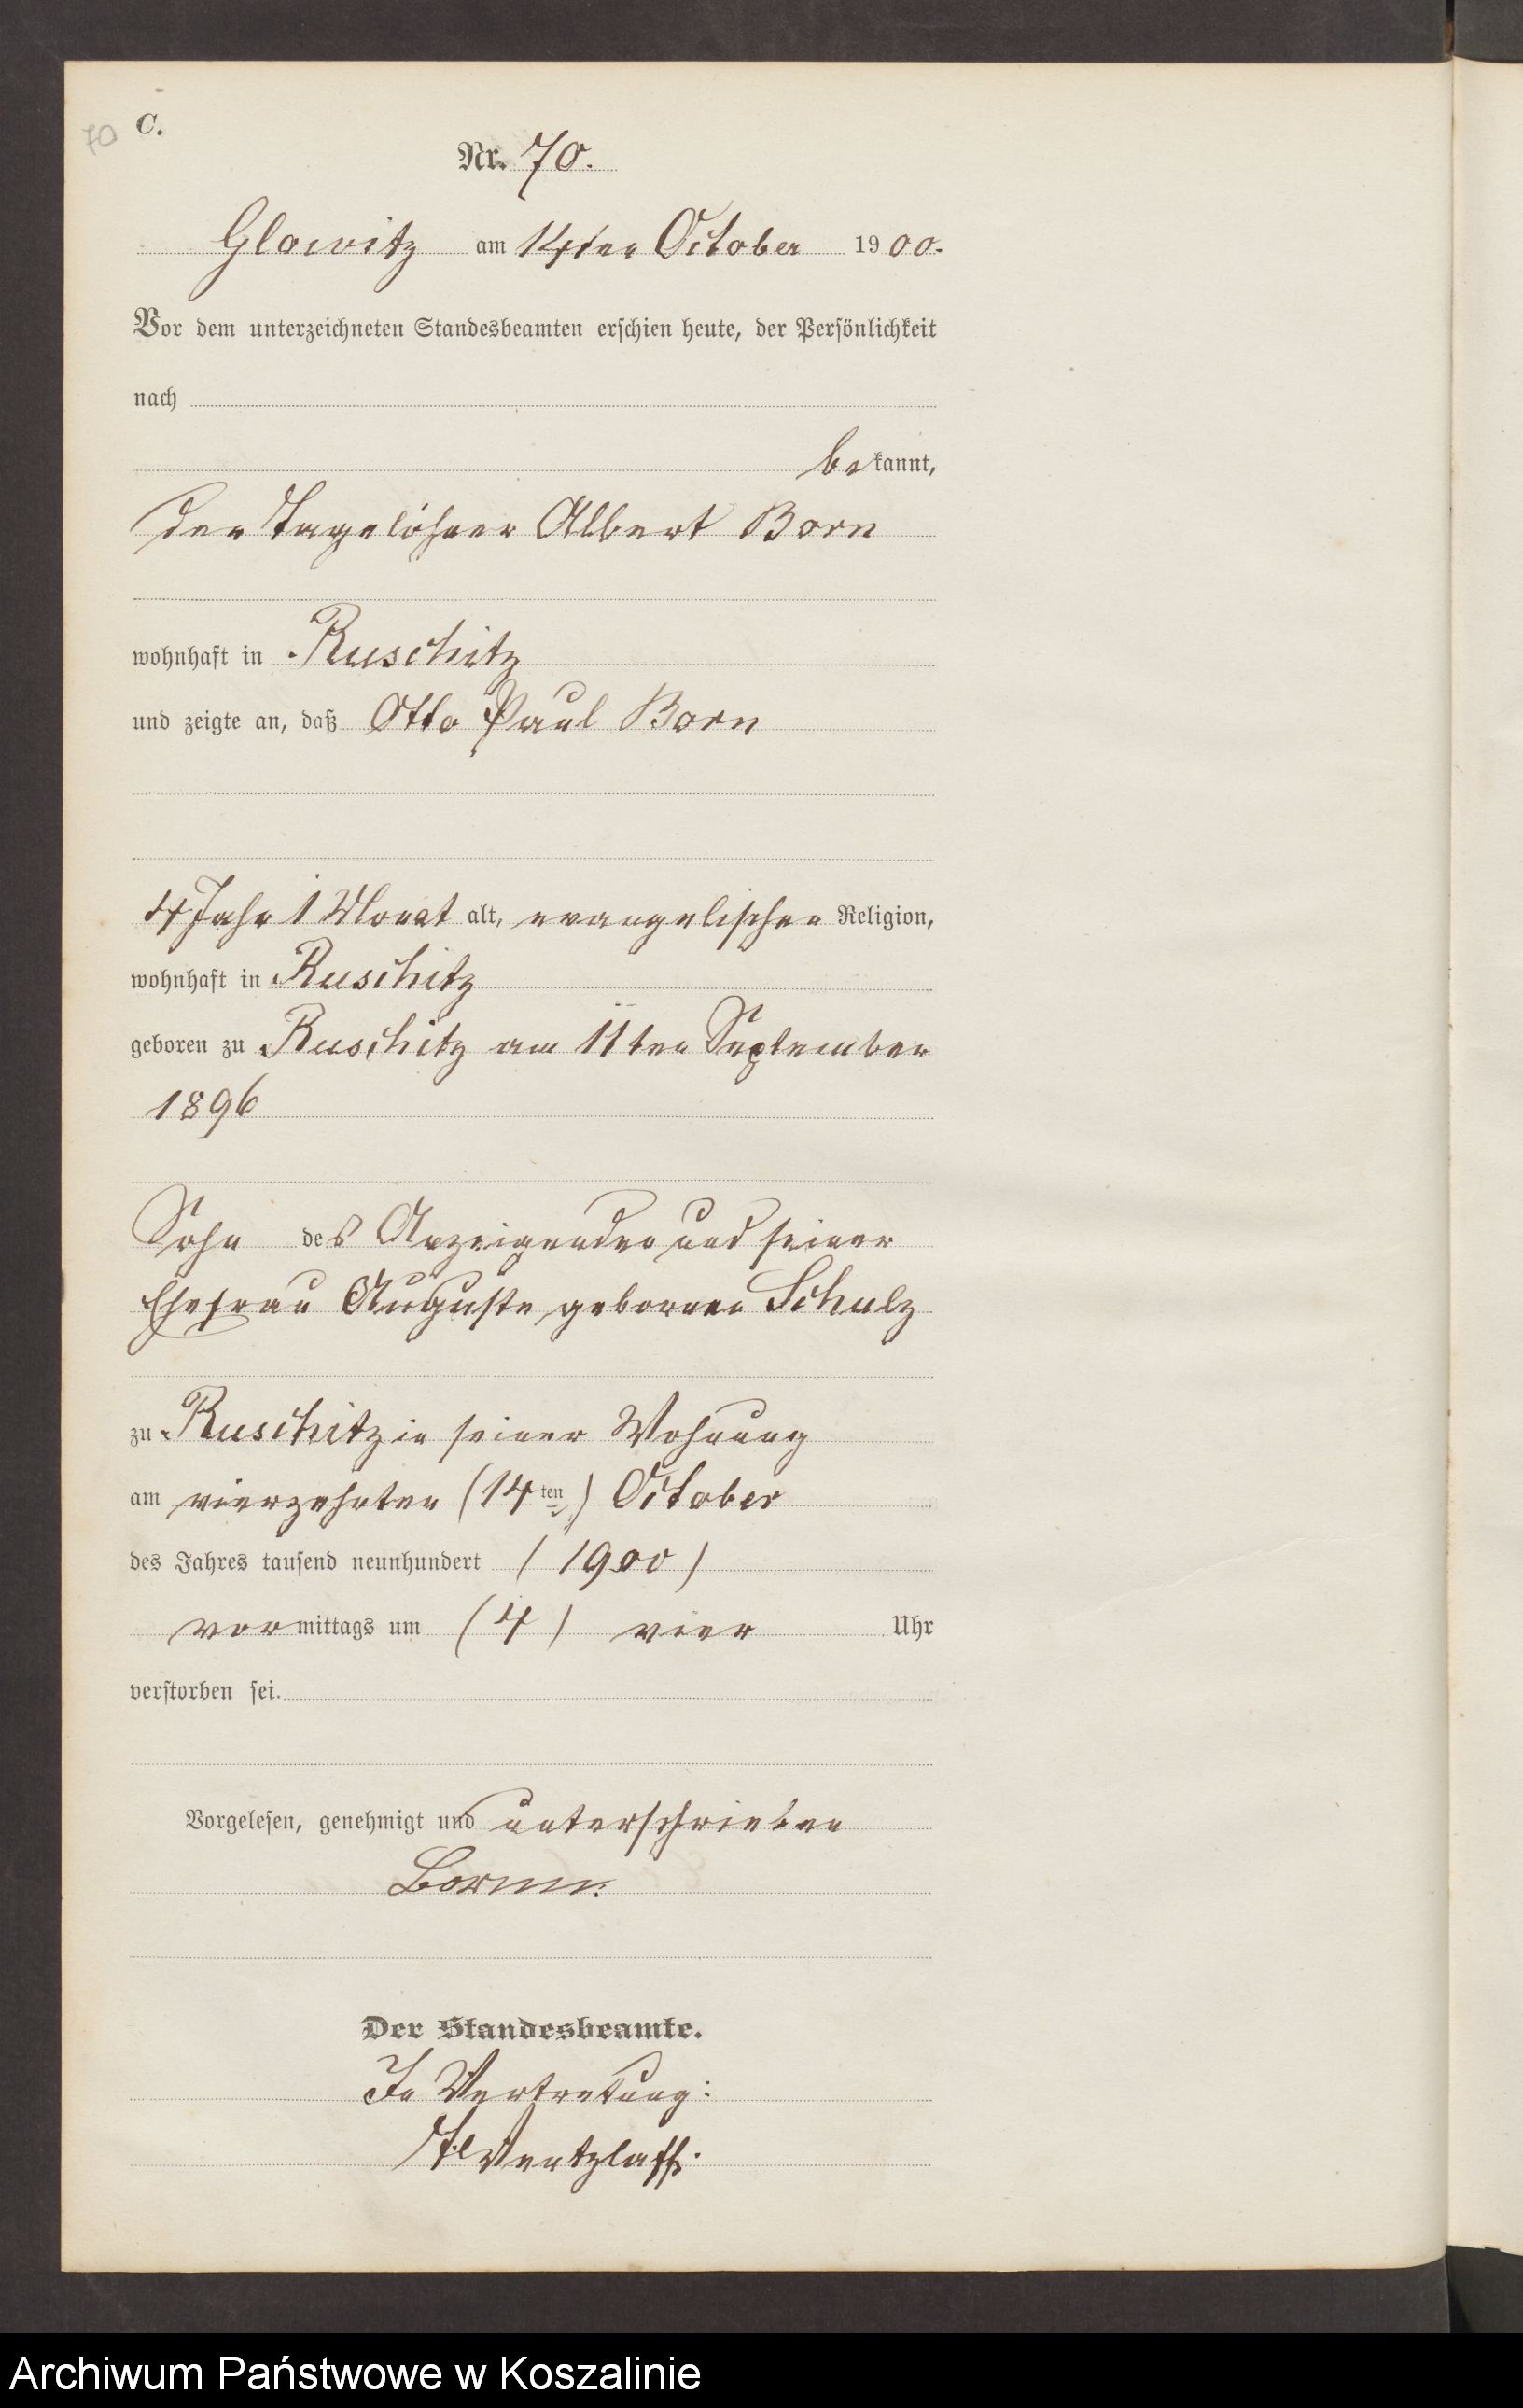 70 C.
Nr. 70.
Glowitz am 14ten October 1900.
Vor dem unterzeichneten Standesbeamten erschien heute, der Persönlichkeit
nach
bekannt,
der Tagelöhner Albert Born
wohnhaft in Ruschitz
und zeigte an, daß Otto Paul Born
4 Jahr 1 Monat alt, evangelischer Religion,
wohnhaft in Ruschitz
geboren zu Ruschitz am 11ten September
1896
Sohn des Anzeigenden und seiner
Ehefrau Auguste geborenen Schulz
zu Ruschitz in seiner Wohnung
am vierzehnten (14ten) October
des Jahres tausend neunhundert (1900)
vormittags um (4) vier Uhr
verstorben sei.
Vorgelesen, genehmigt und unterschrieben
Born
Der Standesbeamte.
In Vertretung:
Wentzlaff.
Archiwum Państwowe w Koszalinie